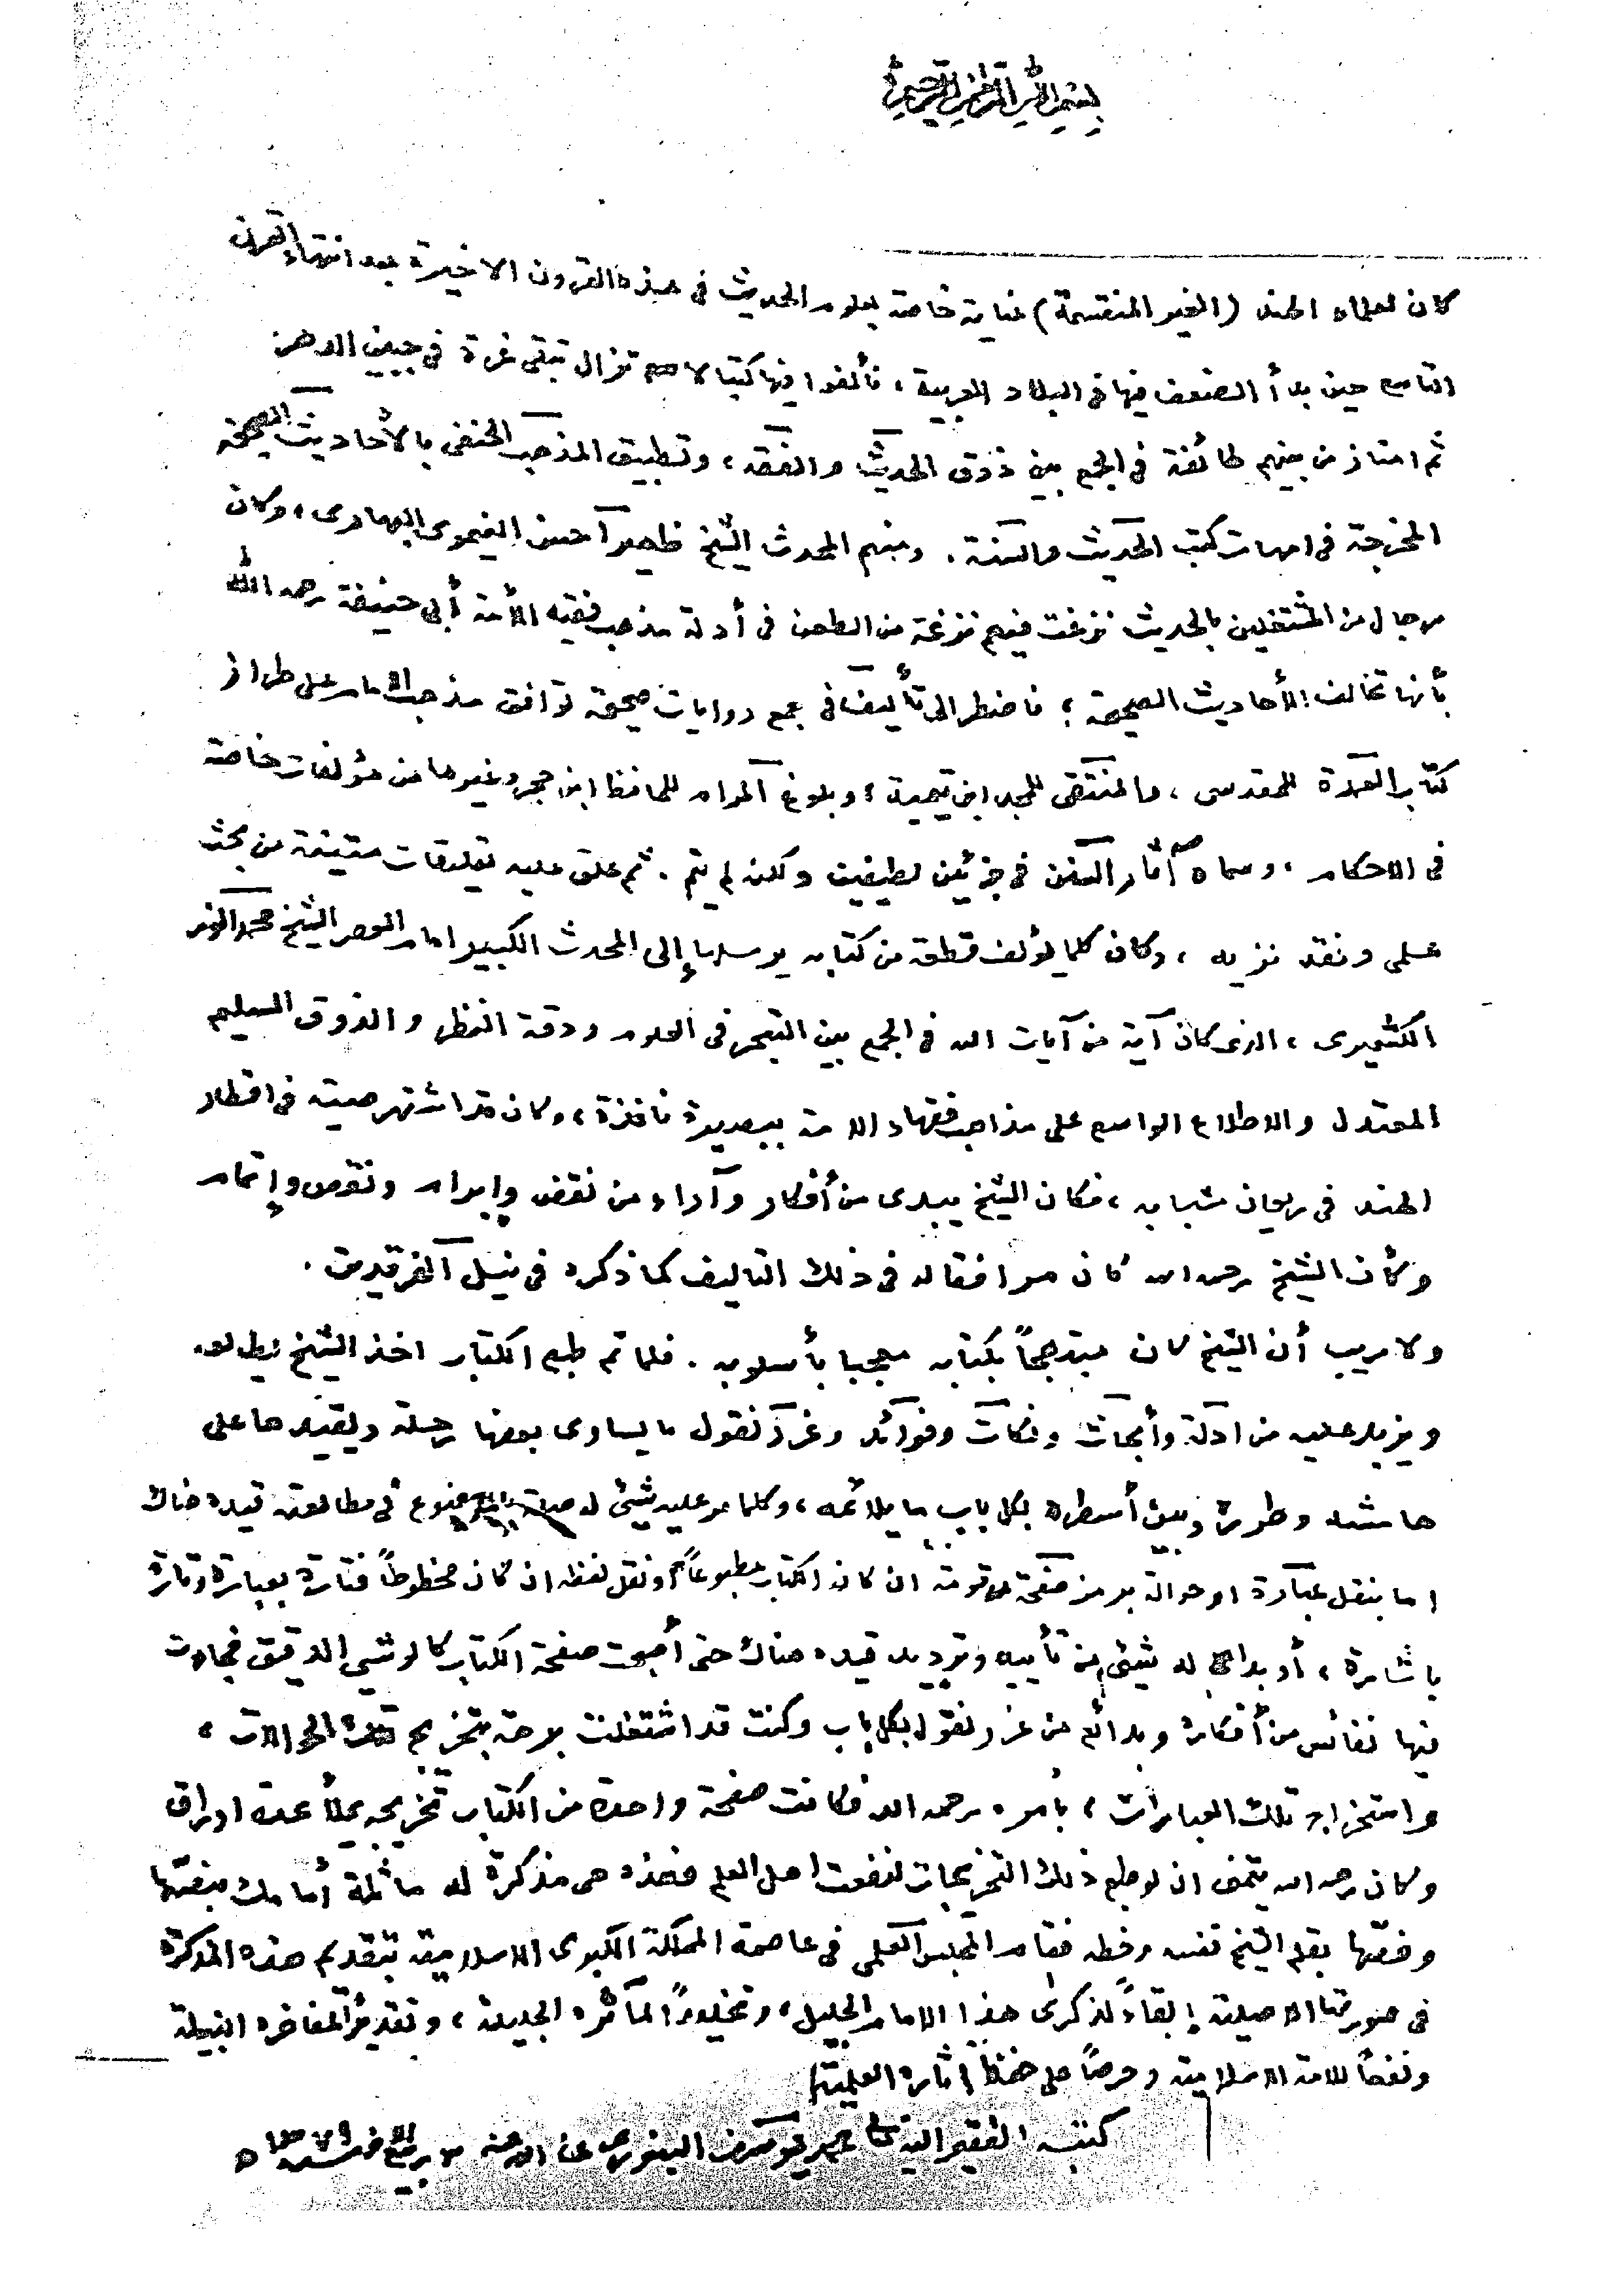 بسم الله الرحمن الرحيم
كان لعلماء الهند (الغير المنقسمة) عناية خاصة بعلوم الحديث في هذه القرون الاخيرة بعد انتهاء القرن
التاسع حين بدأ الضعف فيها في البلاد العربية ، فألفوا فيها كتبا لا تزال تبقى غرة في جبين الدهر
ثم امتاز من بينهم طائفة في الجمع بين ذوق الحديث والفقه ، وتطبيق المذهب الحنفي بالأحاديث الصحيحة
المخرجة في امهات كتب الحديث والسنة . ومنهم المحدث الشيخ ظهير احسن النيموى البهارى ، وكان
رجال من المشتغلين بالحديث نزغت فيهم نزغة من الطعن في أدلة مذهب فقيه الأمة أبي حنيفة رحمه الله
بأنها تخالف الأحاديث الصحيحة ؛ فاضطر الى تأليف في جمع روايات صحيحة توافق مذهب الامام على طراز
كتاب العمدة للمقدسى ، والمنتقى للمجد ابن تيمية ؛ وبلوغ المرام للحافظ ابن حجر وغيرها من مؤلفات خاصة
في الاحكام ، وسماه آثار السنن في جزئين لطيفين ولكن لم يتم . ثم علق عليه تعليقات متينة من بحث
علمى ونقد نزيه ، وكان كلما يؤلف قطعة من كتابه يرسلها إلى المحدث الكبير امام العصر الشيخ محمد انور
الكشميرى ، الذى كان آية من آيات الله في الجمع بين التبحر في العلوم ودقة النظر والذوق السليم
المعتدل والاطلاع الواسع على مذاهب فقهاء الامة ببصيرة نافذة ، وكان قد اشتهر صيته في اقطار
الهند في ريعان شبابه ، فكان الشيخ يبدى من أفكار وآراء من نقض وإبرام ونقص وإتمام
وكأن الشيخ رحمه الله كان مرافقا له في ذلك التاليف كما ذكره في نيل الفرقدين .
ولا ريب أن الشيخ كان مبتهجاً بكتابه معجبا بأسلوبه . فلما تم طبع الكتاب اخذ الشيخ يطالعه
ويزيد عليه من ادلة وأبحاث ونكات وفوائد وغرر نقول ما يساوى بعضها رحلة ويقيدها على
هامشه وطرره وبين أسطره بكل باب ما يلائمه ، وكلما مر عليه شيئ له صلة بالموضوع في مطالعته قيده هناك
اما بنقل عبارة او حوالة برمز صفحة مرقومة ان كان الكتاب مطبوعاً أو نقل لفظه ان كان مخطوطاً فتارة بعبارة وتارة
باشارة ، أو بدا له شيئ من تأييد وترديد قيده هناك حتى أصبحت صفحة الكتاب كالوشي الدقيق فجاءت
فيها نفائس من أفكاره وبدائع من غرر نقول بكل باب وكنت قد اشتغلت برهة بتخريج تلك الحوالات ،
واستخراج تلك العبارات ، بأمره رحمه الله فكانت صفحة واحدة من الكتاب تخريجه يملأ عدة اوراق
وكان رحمه الله يتمنى ان لو طبع ذلك التخريجات لنفعت اهل العلم فهذه هى مذكرة له ماثلة أمامك بنصها
وفصها بقلم الشيخ نفسه وخطه فقام المجلس العلمى في عاصمة المملكة الكبرى الاسلامية بتقديم هذه المذكرة
في صورتها الاصيلة إبقاءً لذكرى هذا الامام الجليل ، وتخليداً لمآثره الجليلة ، وتقديراً لمفاخره النبيلة
ونفعاً للامة الاسلامية وحرصاً على حفظ آثاره العلمية
كتبه الفقير اليه تعالى محمد يوسف البنورى عفا الله عنه